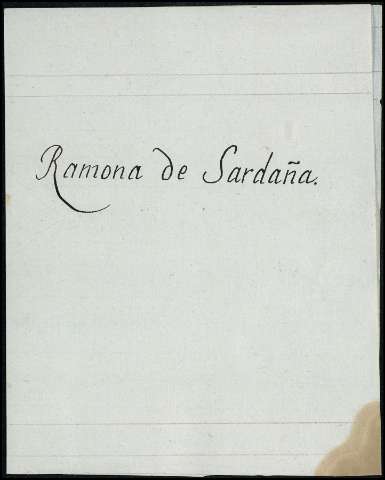 Ramona de Sardaña.